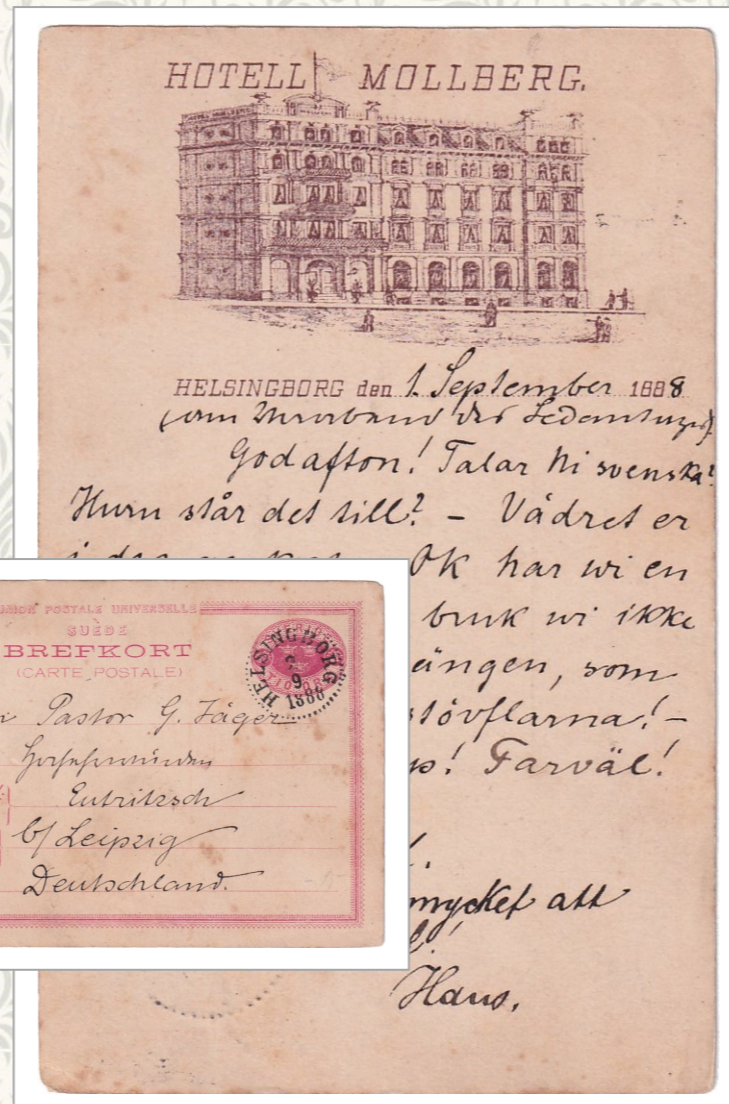 HOTELL MOLLBERG.
HELSINGBORG den 1. September 1888
Godafton! Talar Ni svenska?
Huru står det till? – Vädret er
Ok har wi en
bruk wi ikke
ängen, som
stövflarna! –
Farväl!
mycket att
Hans.
UNION POSTALE UNIVERSELLE
SUÈDE
BREFKORT
(CARTE POSTALE)
HELSINGBORG
9
1888
Pastor G. Jäger
Eutritzsch
b/ Leipzig
Deutschland.